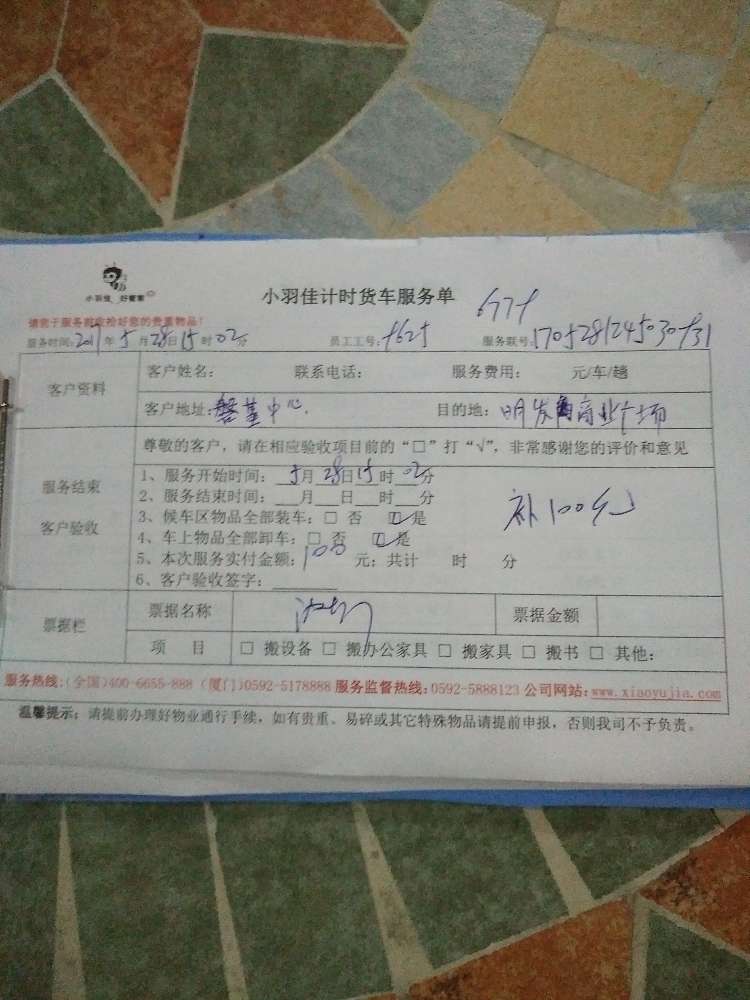 小羽佳 好管家
小羽佳计时货车服务单
请您于服务前收拾好您的贵重物品！
服务时间：2017年5月28日15时02分 员工工号： 服务联号：
客户资料
客户姓名： 联系电话： 服务费用： 元/车/趟
客户地址：磐基中心 目的地：明发商业广场
尊敬的客户，请在相应验收项目前的“□”打“√”，非常感谢您的评价和意见
服务结束
客户验收
1、服务开始时间：5月28日15时02分
2、服务结束时间：___月___日___时___分
3、候车区物品全部装车：□ 否 ☑是
4、车上物品全部卸车：□ 否 ☑是
5、本次服务实付金额：100 元；共计 时 分
6、客户验收签字：
补100元
票据栏
票据名称 票据金额
项 目 □ 搬设备 □ 搬办公家具 □ 搬家具 □ 搬书 □ 其他：
服务热线：(全国)400-6655-888 (厦门)0592-5178888 服务监督热线：0592-5888123 公司网站：www.xiaoyujia.com
温馨提示：请提前办理好物业通行手续，如有贵重、易碎或其它特殊物品请提前申报，否则我司不予负责。